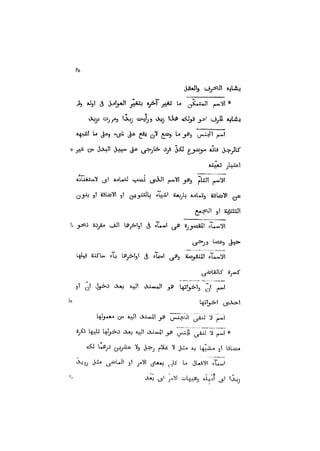 ٢٥
يشابه الحرف والفعل
* الاسم المتمكّن ما تغيّر آخره بتغيّر العوامل فى اوله ولم
يشابه الحرف نحو قولك هذا زيد ورأيت زيدًا ومررت بزيد
اسم الجنس وهو ما وضع لان يقع على شىء وعلى ما اشبهه
كالرجل فانّه موضوع لكلّ فرد خارجى على سبيل البدل من غير ٥
اعتبار تعيّنه
الاسم التامّ وهو الاسم الذى نُصب لتمامه اى لاستغنائه
عن الاضافة وتمامه باربعة اشيآء بالتنوين او الاضافة او بنون
التثنية او الجمع
الاسمآء المقصورة هى اسمآء فى اواخرها الف مفردة نحو ١٠
حبلى وعصا ورحى
الاسمآء المنقوصة وهى اسمآء فى اواخرها يآء ساكنة قبلها
كسرة كالقاضى
اسم انّ واخواتها هو المسند اليه بعد دخول انّ او
احدى اخواتها ١٥
اسم لا لنفى الجنس هو المسند اليه من معمولها
* اسم لا لنفى الجنس هو المسند اليه بعد دخولها تليها نكرة
مضافا او مشبّها به مثل لا غلام رجل ولا عشرين درهمًا لك
اسمآء الافعال ما كان بمعنى الامر او الماضى مثل رويد
زيدًا اى أمهله وهيهات الامر اى بَعُد ٢٠